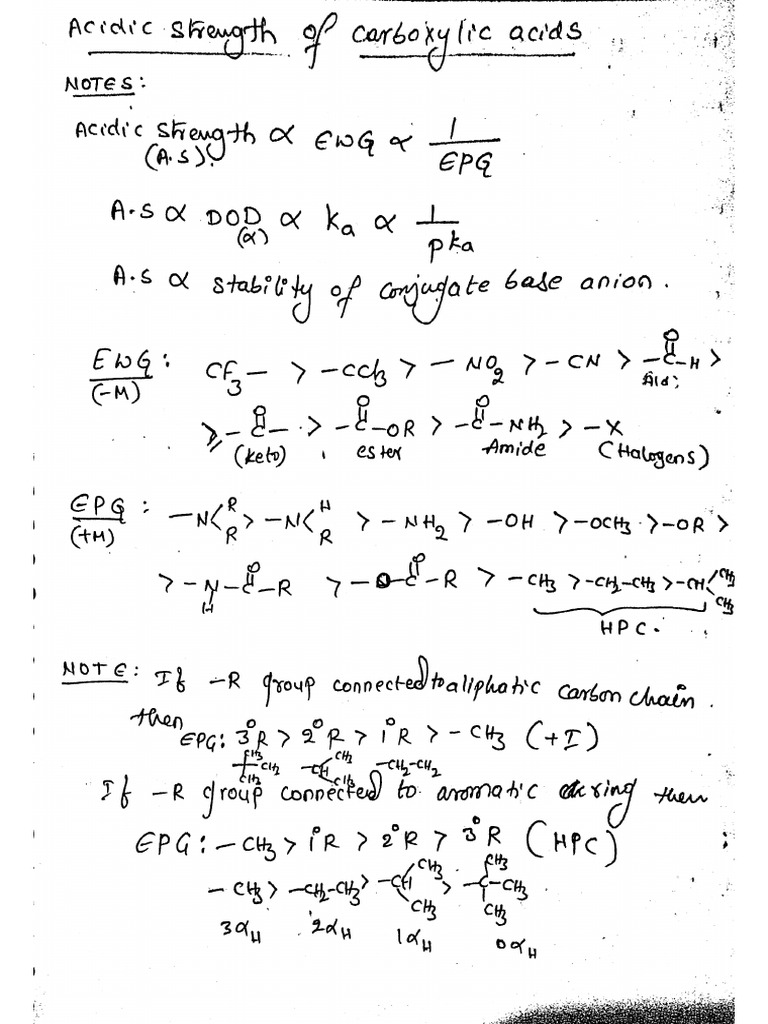 Acidic strength of carboxylic acids
NOTES:
Acidic strength ∝ EWG ∝ 1/EPG
(A.S).
A.S ∝ DOD ∝ ka ∝ 1/pka
(α)
A.S ∝ stability of conjugate base anion.
EWG: CF3— > —CCl3 > —NO2 > —CN > —C(=O)—H >
(-M) Ald;
> —C(=O)— > —C(=O)—OR > —C(=O)—NH2 > —X
(keto) ester Amide (Halogens)
EPG: —N<R R > —N<H R > —NH2 > —OH > —OCH3 > —OR >
(+M)
> —N(H)—C(=O)—R > —O—C(=O)—R > —CH3 > —CH2—CH3 > —CH<CH3 CH3
HPC.
NOTE: If —R group connected to aliphatic carbon chain.
then EPG: 3°R > 2°R > 1°R > —CH3 (+I)
CH3 CH2 CH2 —CH CH2 CH3 —CH2—CH2
If —R group connected to aromatic ring then
EPG: —CH3 > 1°R > 2°R > 3°R (HPC)
—CH3 > —CH2—CH3 > —CH<CH3 CH3 > —C(CH3)(CH3)—CH3
3αH 2αH 1αH 0αH